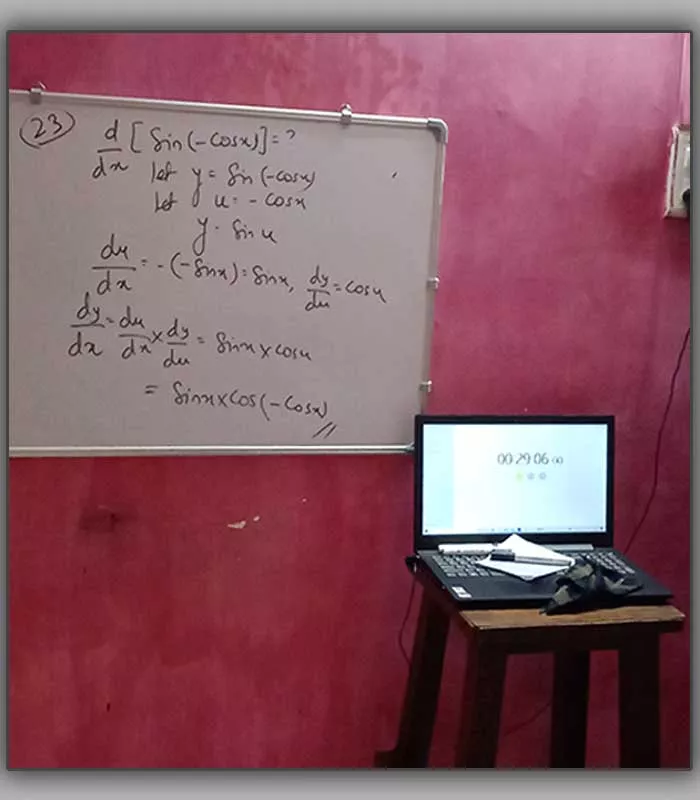 23
d/dx [ Sin(-Cosx)] = ?
let y = Sin(-Cosx)
let u = - Cosx
y = Sin u
du/dx = -(-Sinx) = Sinx, dy/du = Cosu
dy/dx = du/dx × dy/du = Sinx × Cosu
= Sinx × Cos(-Cosx)
00:29:06:00